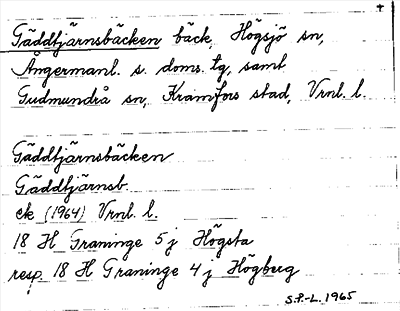 +
Gäddtjärnsbäcken bäck, Högsjö sn,
Ångermanl. s. doms. tg, samt
Gudmundrå sn, Kramfors stad, Vrnl. l.
Gäddtjärnsbäcken
Gäddtjärnsb.
ek (1964) Vrnl. l.
18 H Graninge 5 j Högsta
resp. 18 H Graninge 4 j Högberg
S.P.-L. 1965